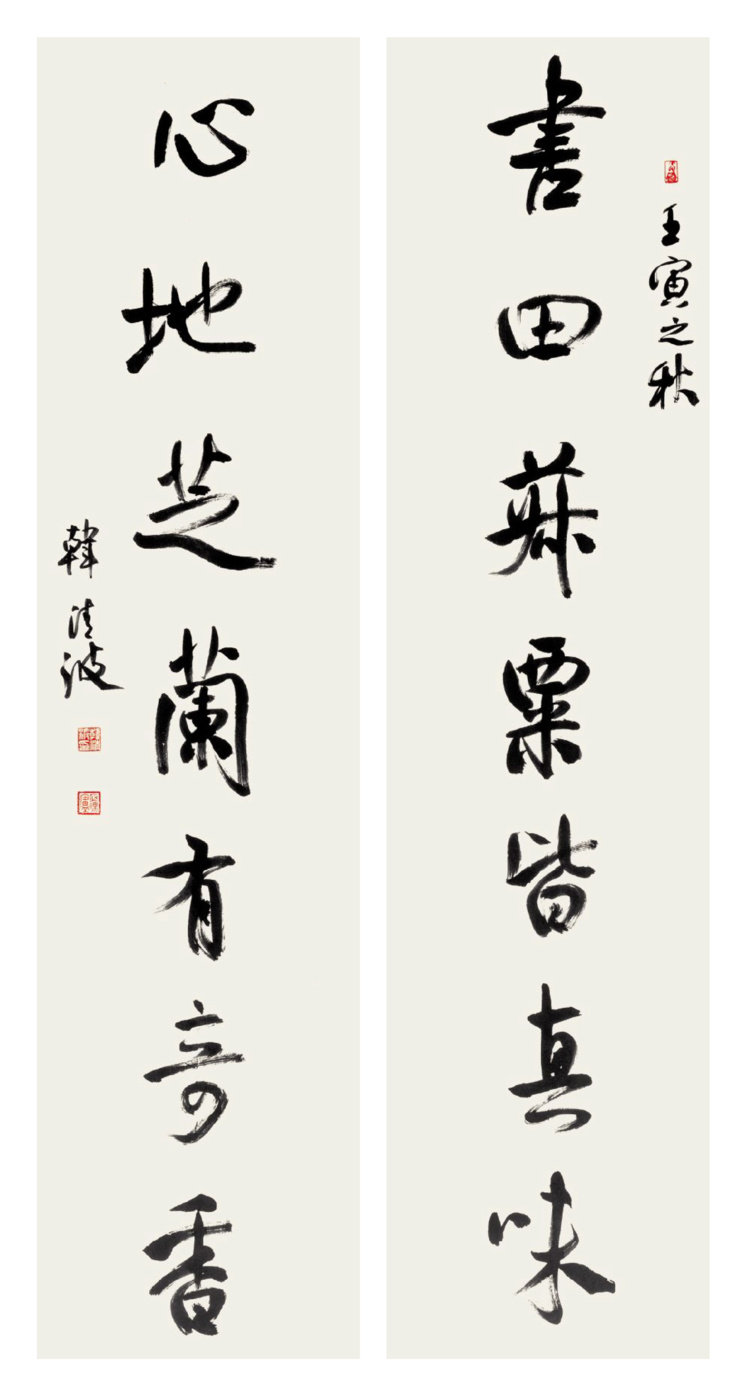 壬寅之秋
書田菽粟皆真味
心地芝蘭有奇香
韓清波